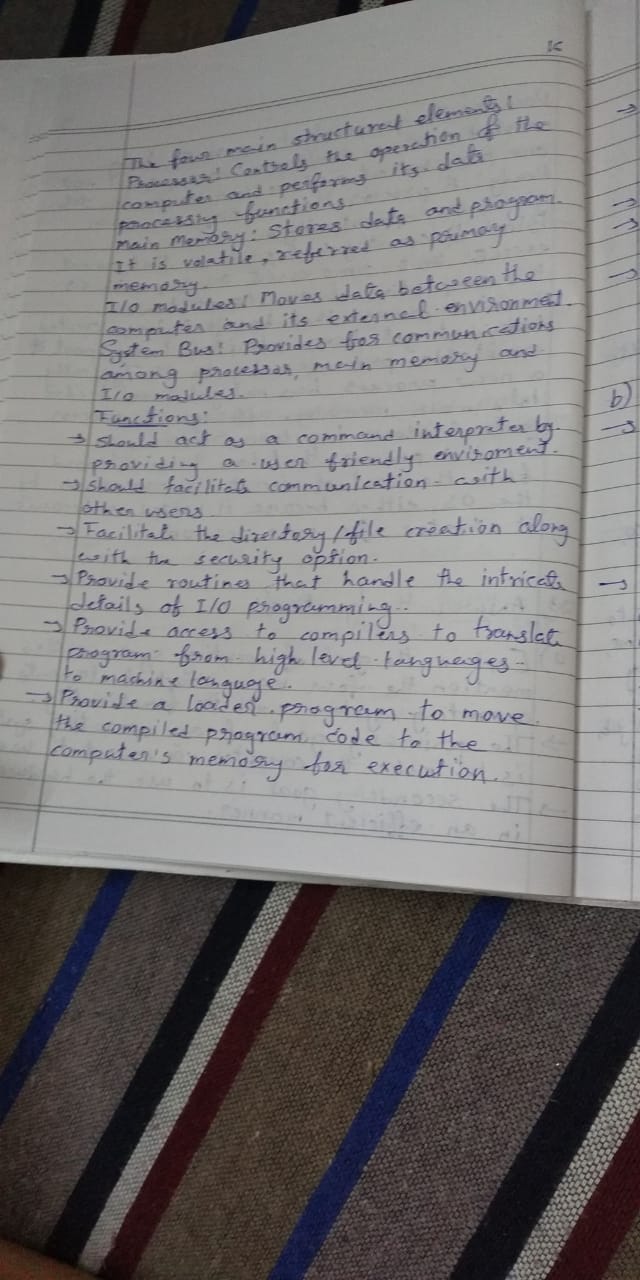 The four main structural elements:
Processor: Controls the operation of the
computer and performs its data
processing functions
Main Memory: Stores data and program.
It is volatile, referred as primary
memory.
I/O modules: Moves data between the
computer and its external environment.
System Bus: Provides for communications
among processor, main memory and
I/O modules.
Functions:
→ should act as a command interpreter by
providing a user friendly enviroment.
→ should facilitate communication with
other users
→ Facilitate the directory/file creation along
with the security option.
→ Provide routines that handle the intricate
details of I/O programming.
→ Provide access to compilers to translate
program from high level languages
to machine language.
→ Provide a loader program to move
the compiled program code to the
computer's memory for execution.
b)